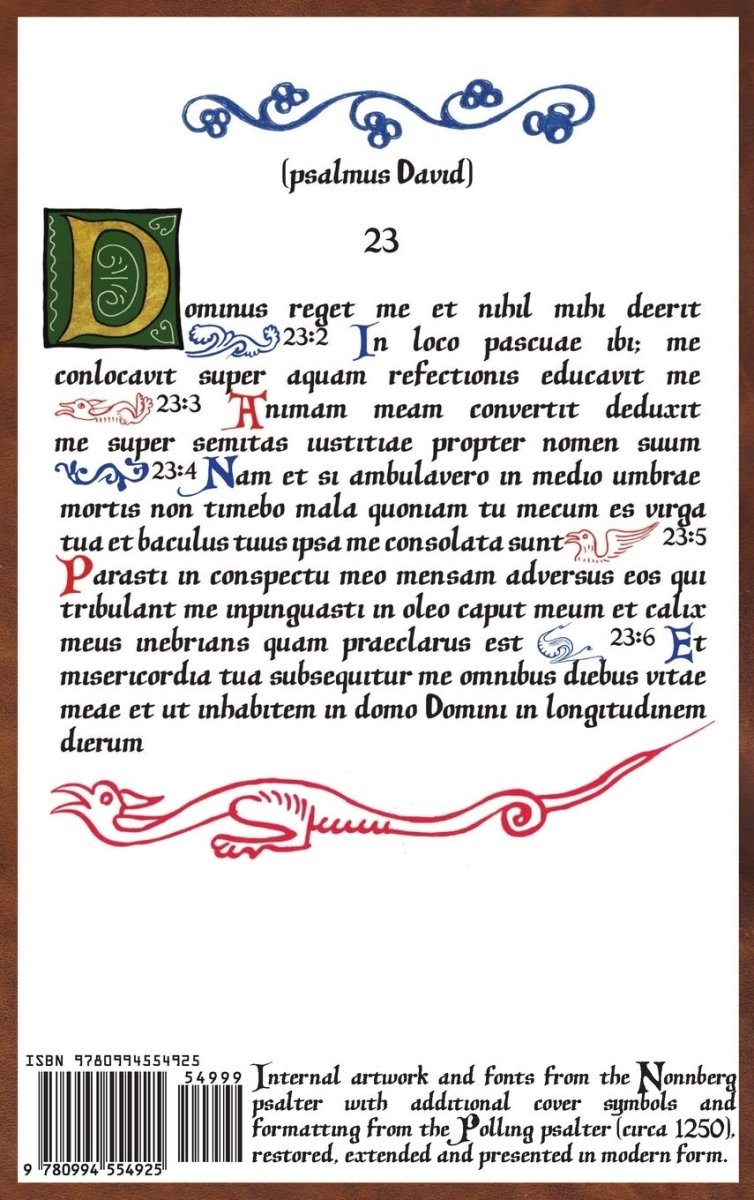 (psalmus David)
23
Dominus reget me et nihil mihi deerit
23:2 In loco pascuae ibi; me
conlocavit super aquam refectionis educavit me
23:3 Animam meam convertit deduxit
me super semitas iustitiae propter nomen suum
23:4 Nam et si ambulavero in medio umbrae
mortis non timebo mala quoniam tu mecum es virga
tua et baculus tuus ipsa me consolata sunt 23:5
Parasti in conspectu meo mensam adversus eos qui
tribulant me inpinguasti in oleo caput meum et calix
meus inebrians quam praeclarus est 23:6 Et
misericordia tua subsequitur me omnibus diebus vitae
meae et ut inhabitem in domo Domini in longitudinem
dierum
ISBN 9780994554925
54999
9 780994 554925
Internal artwork and fonts from the Nonnberg
psalter with additional cover symbols and
formatting from the Polling psalter (circa 1250),
restored, extended and presented in modern form.